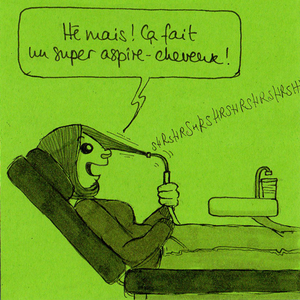 Hé mais ! Ça fait
un super aspire-cheveux !
SHRSHRSHRSHRSHRSHRSHRSH